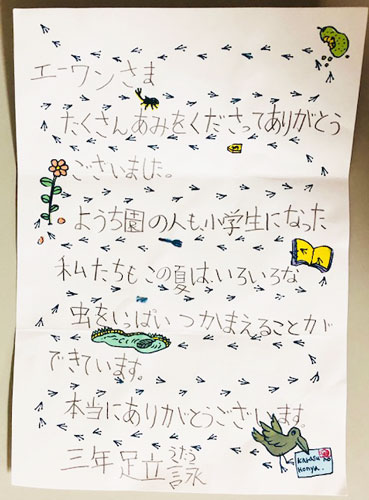 エーワンさま
たくさんあみをくださってありがとう
ございました。
ようち園の人も、小学生になった
私たちもこの夏は、いろいろな
虫をいっぱいつかまえることが
できています。
本当にありがとうございます。
三年足立詠
うたう
Karasu no
Konya.